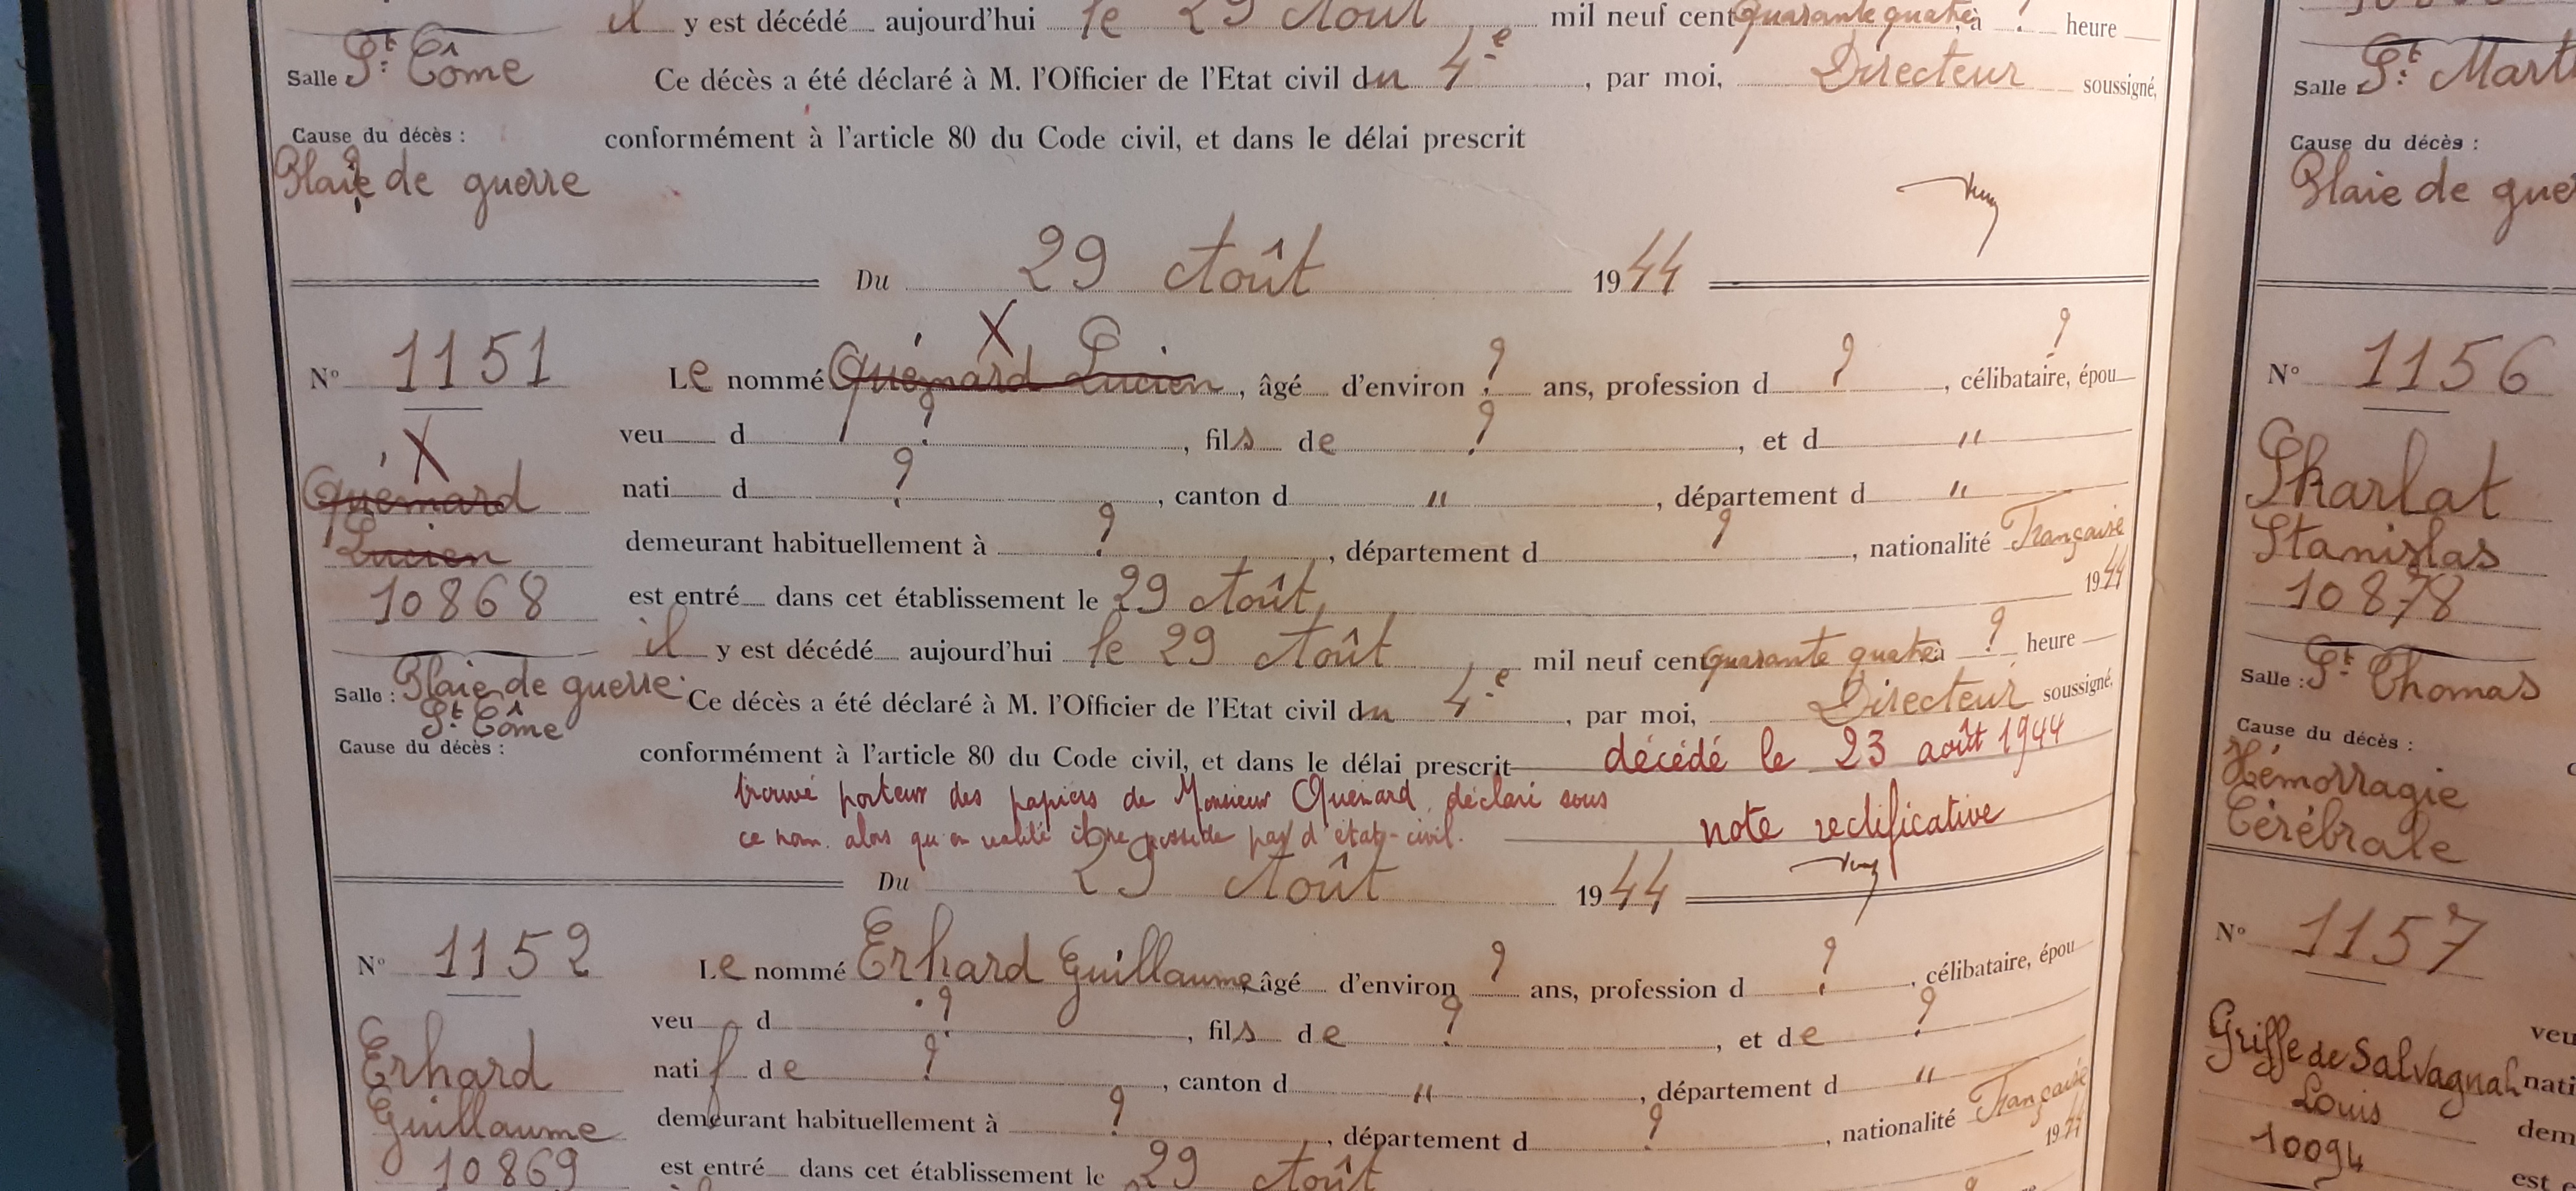 il y est décédé aujourd'hui le 29 Août mil neuf cent quarante quatre à ? heure
Salle St Côme
Ce décès a été déclaré à M. l'Officier de l'Etat civil du 4e, par moi, Directeur soussigné,
Cause du décès :
conformément à l'article 80 du Code civil, et dans le délai prescrit
Plaie de guerre
Du 29 Août 1944
X
No 1151
Le nommé Quémard Lucien, âgé d'environ ? ans, profession d ?, célibataire, épou ?
X
veu d ?, fils de ?, et d "
Quémard
nati d ?, canton d ", département d "
Lucien
demeurant habituellement à ?, département d ?, nationalité Française
10868
est entré dans cet établissement le 29 Août, 1944
il y est décédé aujourd'hui le 29 Août mil neuf cent quarante quatre à ? heure
Salle : Plaie de guerre.
St Côme
Ce décès a été déclaré à M. l'Officier de l'Etat civil du 4e, par moi, Directeur soussigné,
Cause du décès :
conformément à l'article 80 du Code civil, et dans le délai prescrit décédé le 23 août 1944
trouvé porteur des papiers de Monsieur Quémard, déclaré sous
ce nom. alors qu'en réalité il ne possède pas d'état-civil.
note rectificative
Du 29 Août 1944
No 1152
Le nommé Erhard Guillaume, âgé d'environ ? ans, profession d ?, célibataire, épou
veu d ?, fils de ?, et de ?
Erhard
natif de ?, canton d ", département d "
Guillaume
demeurant habituellement à ?, département d ?, nationalité Française
10869
est entré dans cet établissement le 29 Août 1944
Salle St
Cause du décès :
Plaie de
No 1156
Skarlat
Stanislas
10878
Salle : St Thomas
Cause du décès :
Hémorragie
Cérébrale
No 1157
Griffe de Salvagnac
Louis
10094
veu
nati
dem
est e